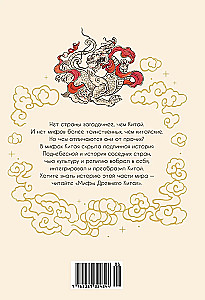 Нет страны загадочнее, чем Китай.
И нет мифов более таинственных, чем китайские.
Но чем отличаются они от прочих?
В мифах Китая скрыта подлинная история
Поднебесной и история соседних стран,
чью культуру и религию вобрал в себя,
интегрировал и преобразил Китай.
Хотите знать историю этой части мира —
читайте «Мифы Древнего Китая».